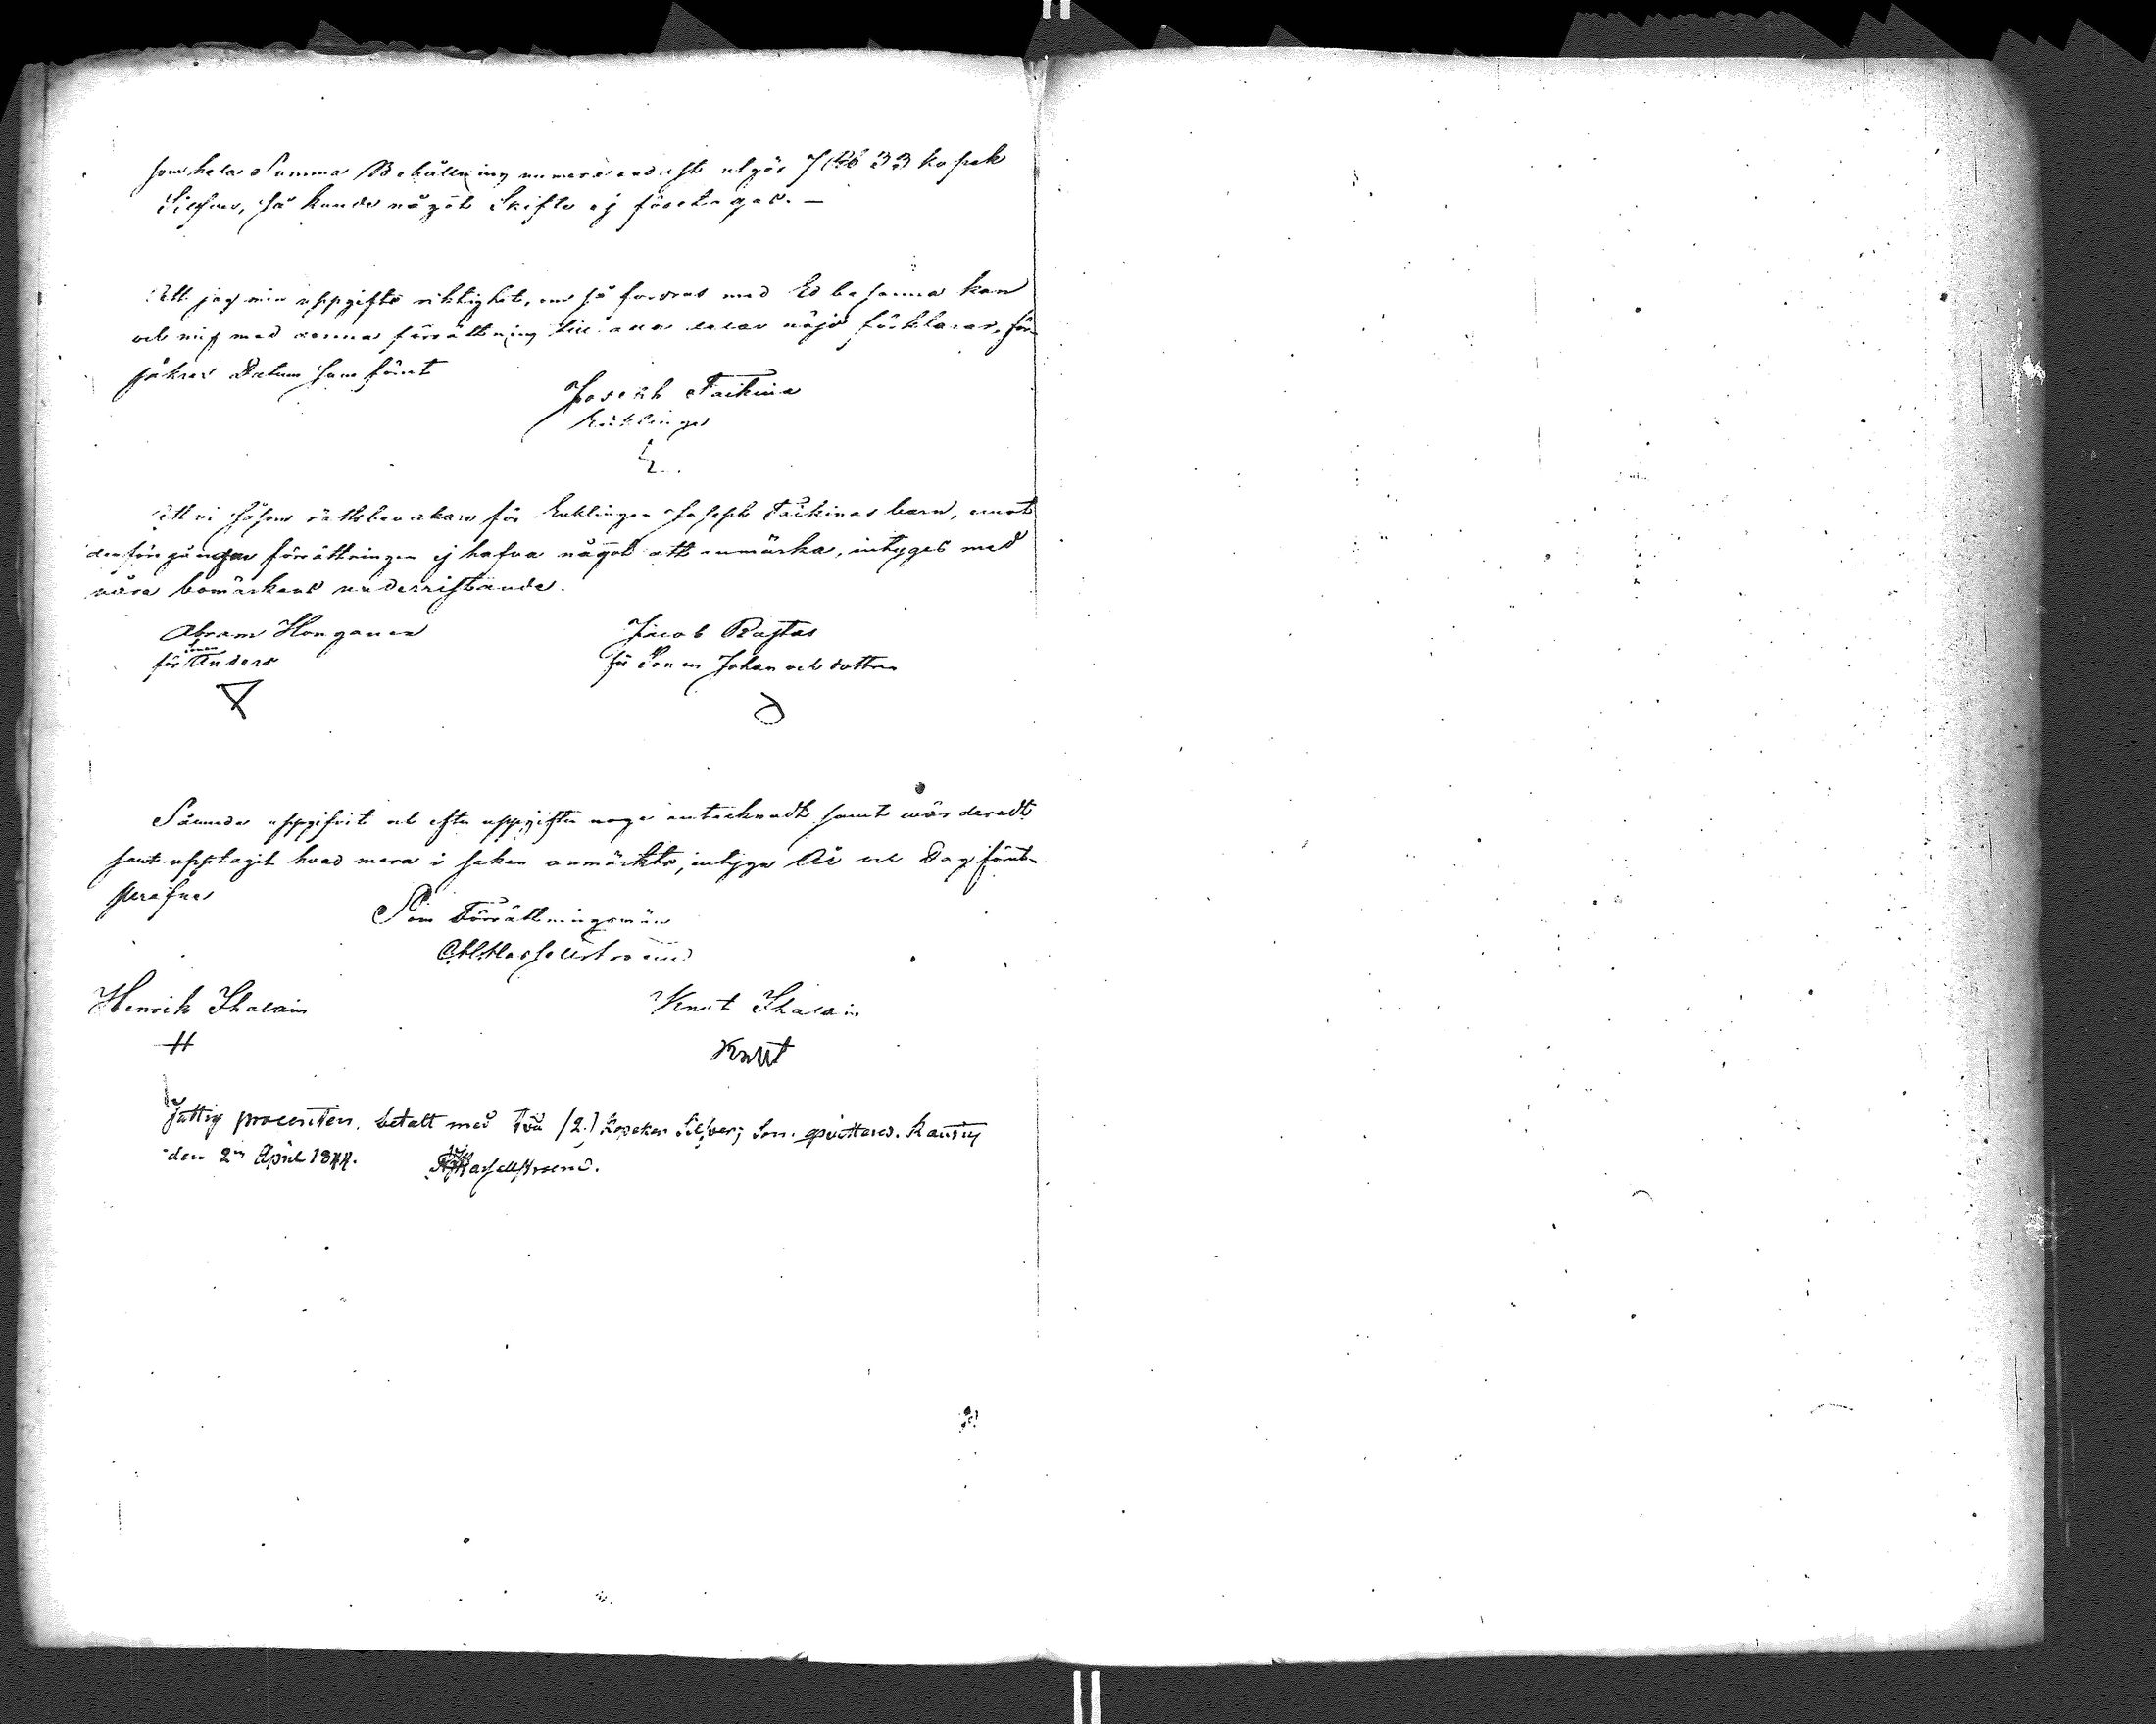 som hela Summa Behållning numera endast utgör 7 Rub 33 kopek
Silfver, så kunde något Skifte ej företagas. —
Att jag min uppgifts riktighet, om så fordras med Ed besanna kan
och mig med denna förrättning till alla delar nöjd förklarar, för-
säkras Datum som förut
Joseph Taikina
Enklinge
Att vi såsom rättsbevakare för Enklingen Joseph Taikinas barn, emot
den föregångna förrättningen ej hafva något att anmärka, intygas med
våra bomärkens underristande.
Abram Honganen
för sonen Anders
Jacob Rastas
för Sonen Johan och dottren
Sålunda uppgifvit och efter uppgiften noga antecknadt samt värderadt
samt upptagit hvad mera i saken anmärkts, intyga År och Dag förut-
skrifne
Som Förrättningsmän
Hasselstroem
Henrik Ihalain
H
Knut Ihalain
KnUt
Fattig procenten, betalt med Två (2.) kopeker Silfver; som qvitteras.
den 2n April 1844. Hasselstroem.